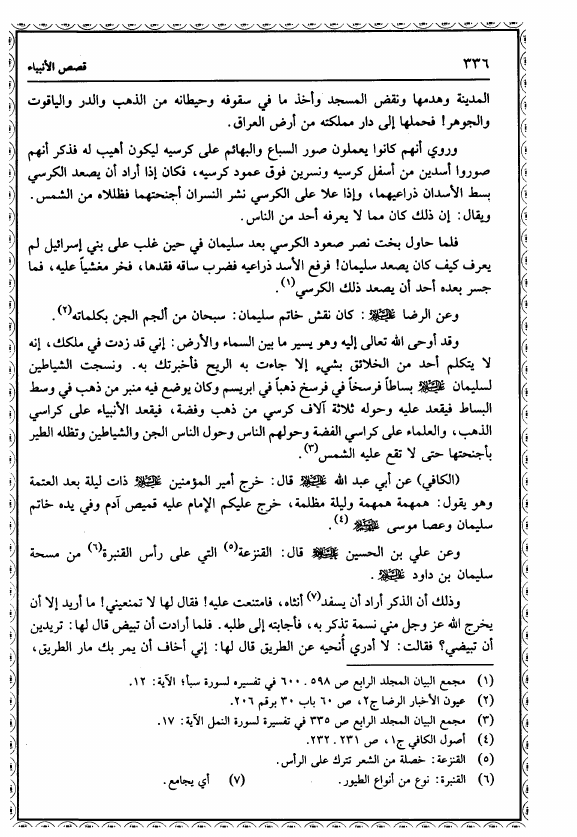 ٣٣٦
قصص الأنبياء
المدينة وهدمها ونقض المسجد وأخذ ما في سقوفه وحيطانه من الذهب والدر والياقوت
والجوهر! فحملها إلى دار مملكته من أرض العراق.
وروي أنهم كانوا يعملون صور السباع والبهائم على كرسيه ليكون أهيب له فذكر أنهم
صوروا أسدين من أسفل كرسيه ونسرين فوق عمود كرسيه، فكان إذا أراد أن يصعد الكرسي
بسط الأسدان ذراعيهما، وإذا علا على الكرسي نشر النسران أجنحتهما فظللاه من الشمس.
ويقال: إن ذلك كان مما لا يعرفه أحد من الناس.
فلما حاول بخت نصر صعود الكرسي بعد سليمان في حين غلب على بني إسرائيل لم
يعرف كيف كان يصعد سليمان! فرفع الأسد ذراعيه فضرب ساقه فقدها، فخر مغشياً عليه، فما
جسر بعده أحد أن يصعد ذلك الكرسي(١).
وعن الرضا عليه السلام: كان نقش خاتم سليمان: سبحان من ألجم الجن بكلماته(٢).
وقد أوحى الله تعالى إليه وهو يسير ما بين السماء والأرض: إني قد زدت في ملكك، إنه
لا يتكلم أحد من الخلائق بشيء إلا جاءت به الريح فأخبرتك به. ونسجت الشياطين
لسليمان عليه السلام بساطاً فرسخاً في فرسخ ذهباً في ابريسم وكان يوضع فيه منبر من ذهب في وسط
البساط فيقعد عليه وحوله ثلاثة آلاف كرسي من ذهب وفضة، فيقعد الأنبياء على كراسي
الذهب، والعلماء على كراسي الفضة وحولهم الناس وحول الناس الجن والشياطين وتظله الطير
بأجنحتها حتى لا تقع عليه الشمس(٣).
(الكافي) عن أبي عبد الله عليه السلام قال: خرج أمير المؤمنين عليه السلام ذات ليلة بعد العتمة
وهو يقول: همهمة همهمة وليلة مظلمة، خرج عليكم الإمام عليه قميص آدم وفي يده خاتم
سليمان وعصا موسى عليه السلام(٤).
وعن علي بن الحسين عليه السلام قال: القنزعة(٥) التي على رأس القنبرة(٦) من مسحة
سليمان بن داود عليه السلام.
وذلك أن الذكر أراد أن يسفد(٧) أنثاه، فامتنعت عليه! فقال لها لا تمنعيني! ما أريد إلا أن
يخرج الله عز وجل مني نسمة تذكر به، فأجابته إلى طلبه. فلما أرادت أن تبيض قال لها: تريدين
أن تبيضي؟ فقالت: لا أدري أُنحيه عن الطريق قال لها: إني أخاف أن يمر بك مار الطريق،
(١) مجمع البيان المجلد الرابع ص ٥٩٨ ـ ٦٠٠ في تفسيره لسورة سبأ؛ الآية: ١٢.
(٢) عيون الأخبار الرضا ج٢، ص ٦٠ باب ٣٠ برقم ٢٠٦.
(٣) مجمع البيان المجلد الرابع ص ٣٣٥ في تفسيرة لسورة النمل الآية: ١٧.
(٤) أصول الكافي ج١، ص ٢٣١ ـ ٢٣٢.
(٥) القنزعة: خصلة من الشعر تترك على الرأس.
(٦) القنبرة: نوع من أنواع الطيور. (٧) أي يجامع.